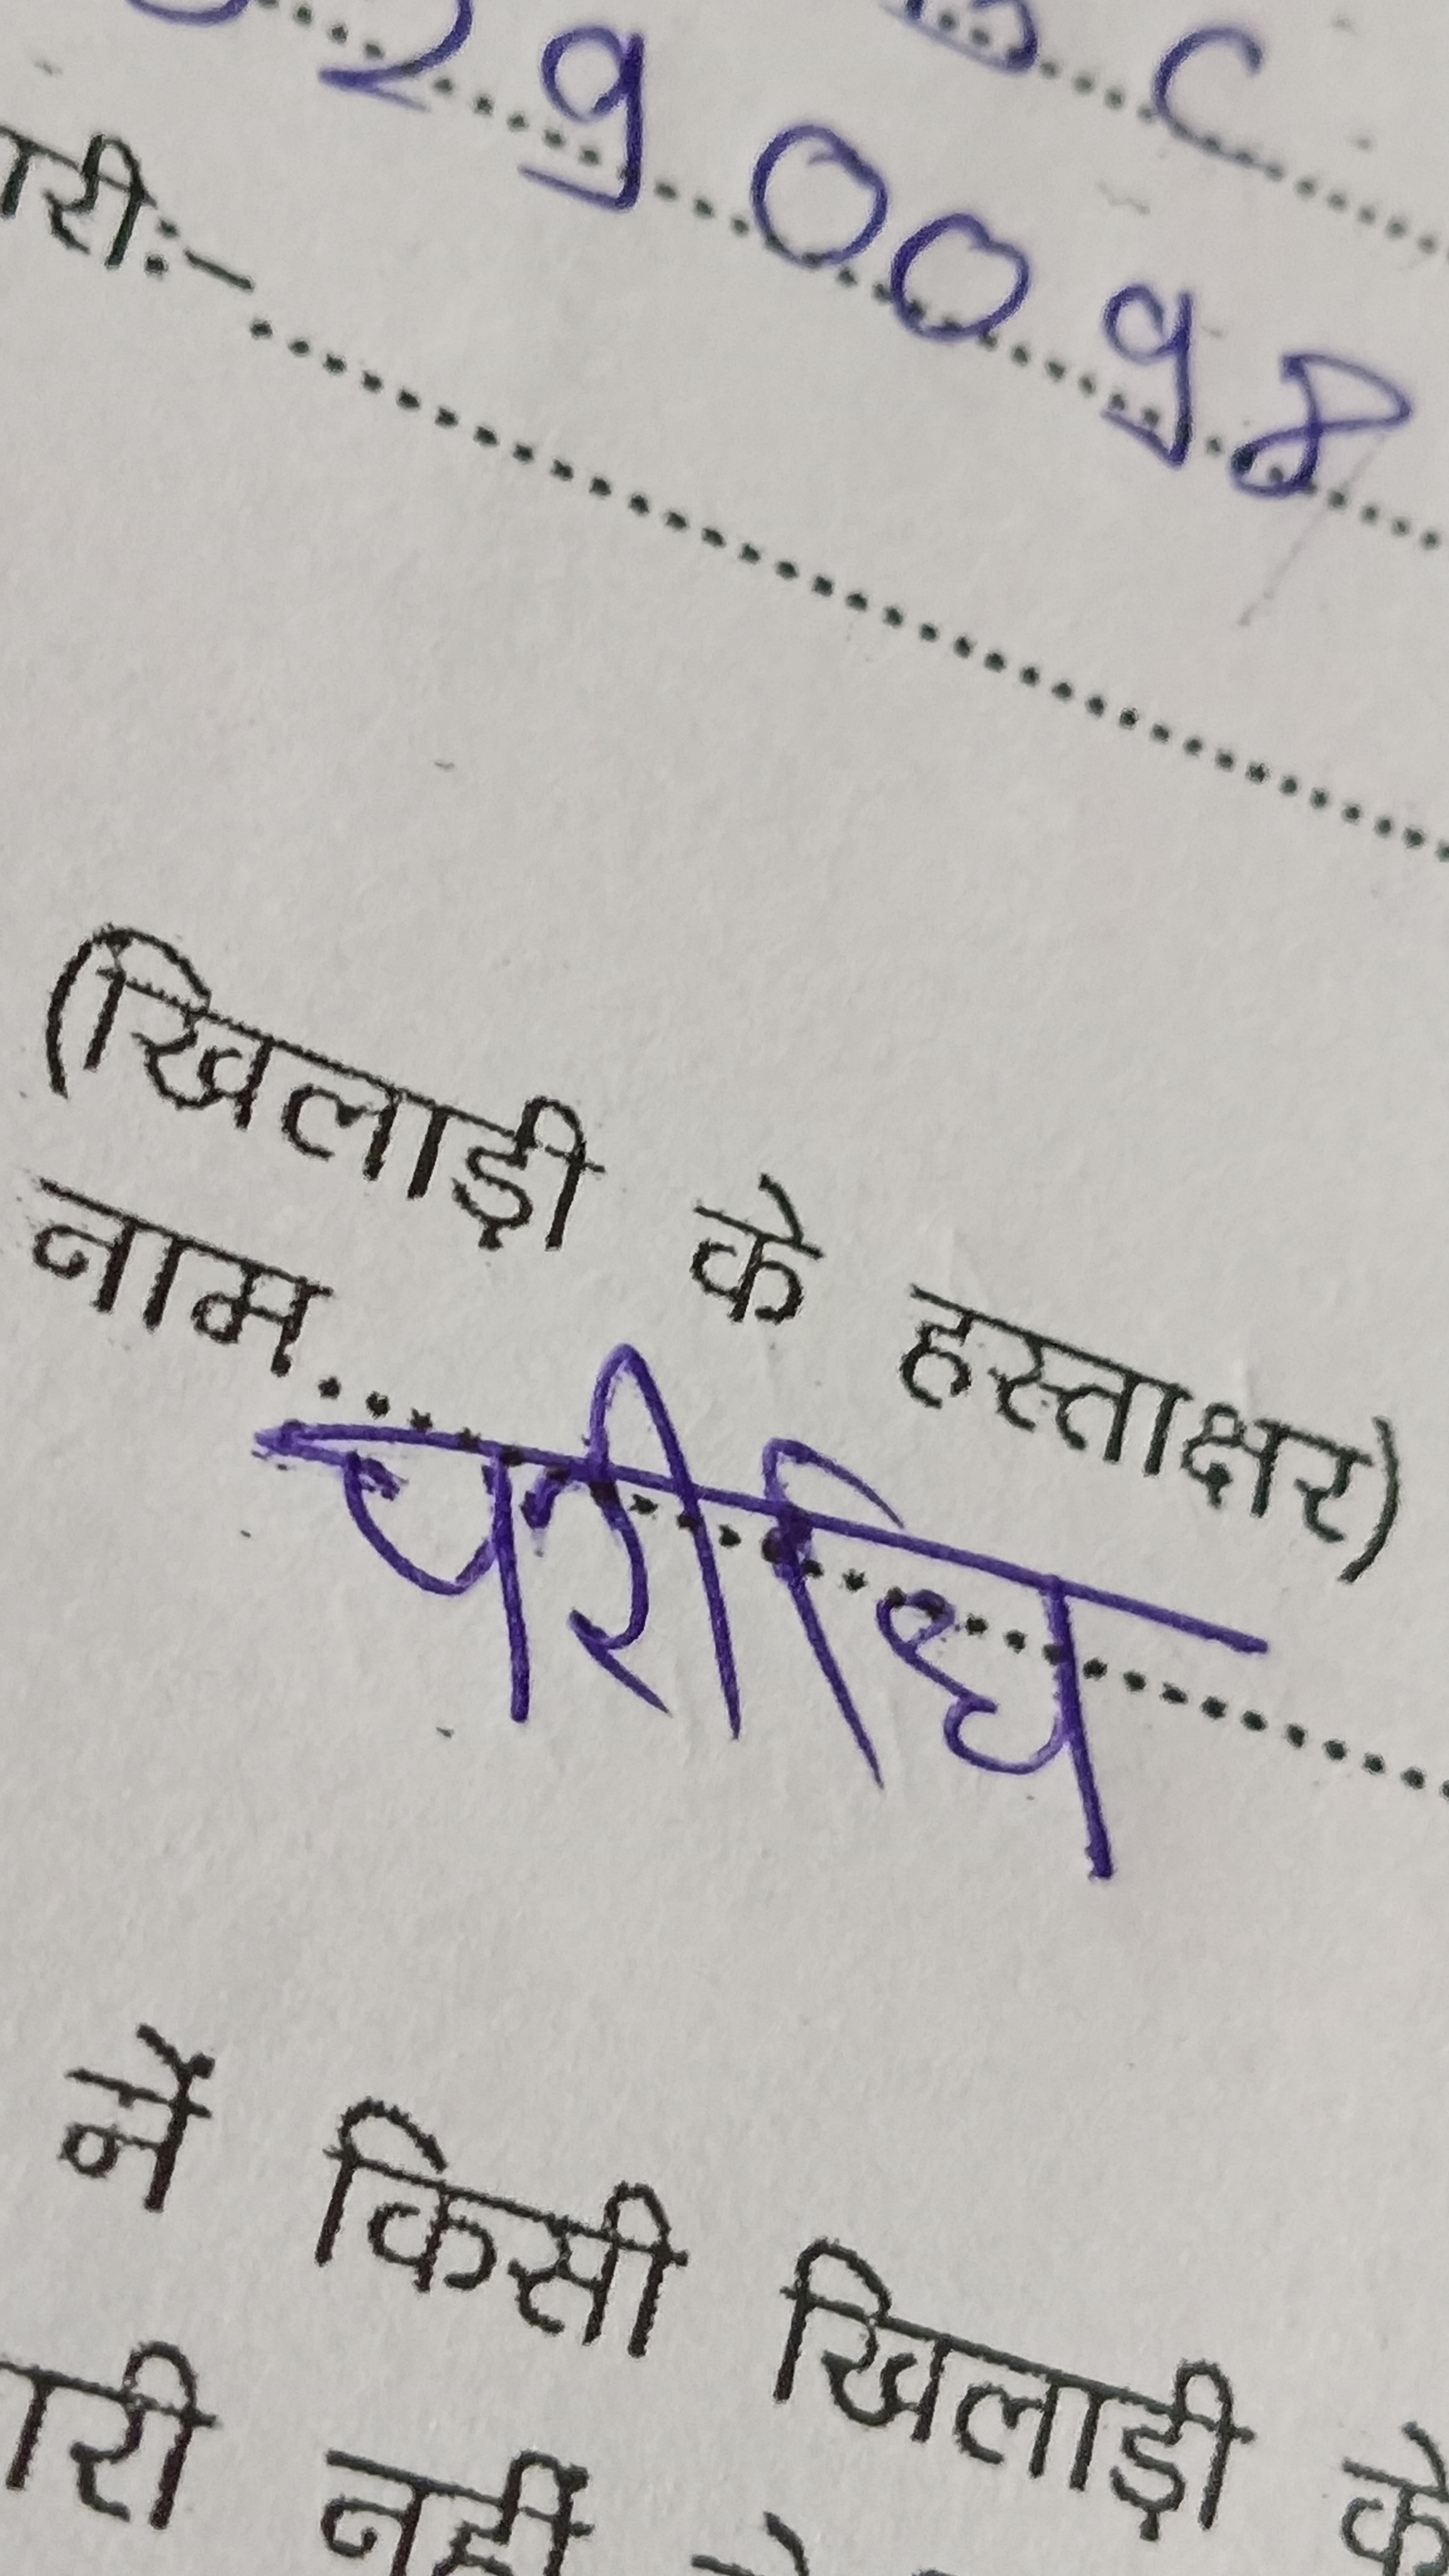 290098
री:-
(खिलाड़ी के हस्ताक्षर)
नाम.... परीधि
नें किसी खिलाड़ी के
री नहीं